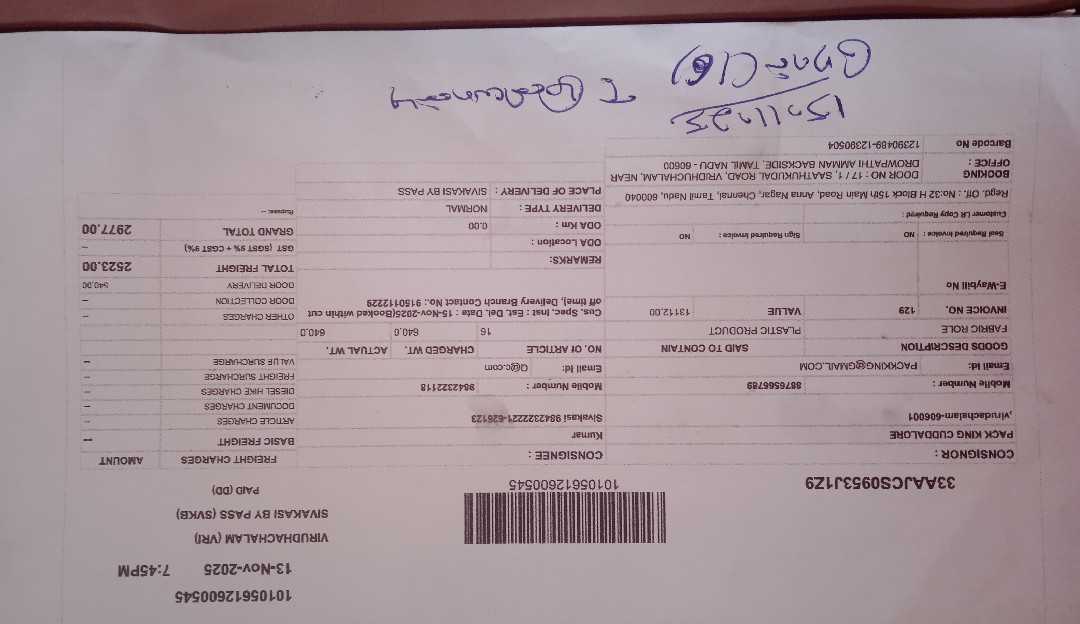 10105612600545
13-Nov-2025 7:45PM
VIRUDHACHALAM (VRI)
SIVAKASI BY PASS (SVKB)
PAID (DD)
33AAJCS0953J1Z9
10105612600545
CONSIGNOR :
PACK KING CUDDALORE
,virudachalam-606001
Mobile Number : 8876566789
Email Id: PACKING@GMAIL.COM
CONSIGNEE :
Kumar
Sivakasi 9842322221-626123
Mobile Number : 9842322118
Email Id: G@c.com
FREIGHT CHARGES AMOUNT
BASIC FREIGHT --
ARTICLE CHARGES --
DOCUMENT CHARGES --
DIESEL HIKE CHARGES --
FREIGHT SURCHARGE --
VALUE SURCHARGE --
OTHER CHARGES --
DOOR COLLECTION --
DOOR DELIVERY 540.00
TOTAL FREIGHT 2523.00
GST (SGST 9% + CGST 9%) --
GRAND TOTAL 2977.00
Rupees: --
GOODS DESCRIPTION SAID TO CONTAIN NO. Of ARTICLE CHARGED WT. ACTUAL WT.
FABRIC ROLE PLASTIC PRODUCT 16 640.0 640.0
INVOICE NO. 129 VALUE 13112.00
E-Waybill No
Cus. Spec. Inst : Est. Del. Date : 15-Nov-2025(Booked within cut
off time), Delivery Branch Contact No.: 9150112229
Seal Required Invoice : NO Sign Required Invoice : NO
Customer LR Copy Required :
Regd. Off. : No:32 H Block 15th Main Road, Anna Nagar, Chennai, Tamil Nadu, 600040
BOOKING OFFICE : DOOR NO : 17 / 1, SAATHUKUDAL ROAD, VIRDHUCHALAM, NEAR
DROWPATHI AMMAN BACKSIDE, TAMIL NADU - 60600
Barcode No 12390489-12390504
REMARKS:
ODA Location :
ODA Km : 0.00
DELIVERY TYPE : NORMAL
PLACE OF DELIVERY : SIVAKASI BY PASS
15/11/25